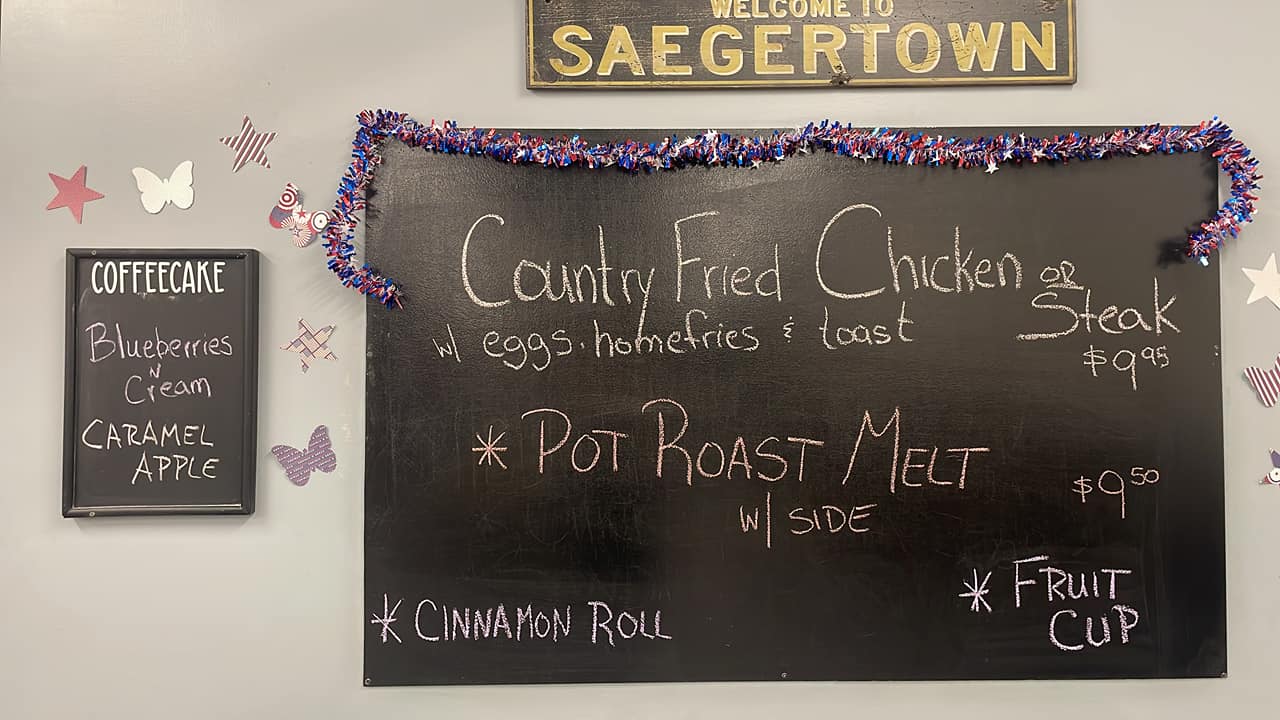 WELCOME TO
SAEGERTOWN
COFFEECAKE
Blueberries
N
Cream
CARAMEL
APPLE
Country Fried Chicken OR
Steak
w/ eggs, homefries & toast
$9.95
* POT ROAST MELT
$9.50
w/ SIDE
* CINNAMON ROLL
* FRUIT
CUP